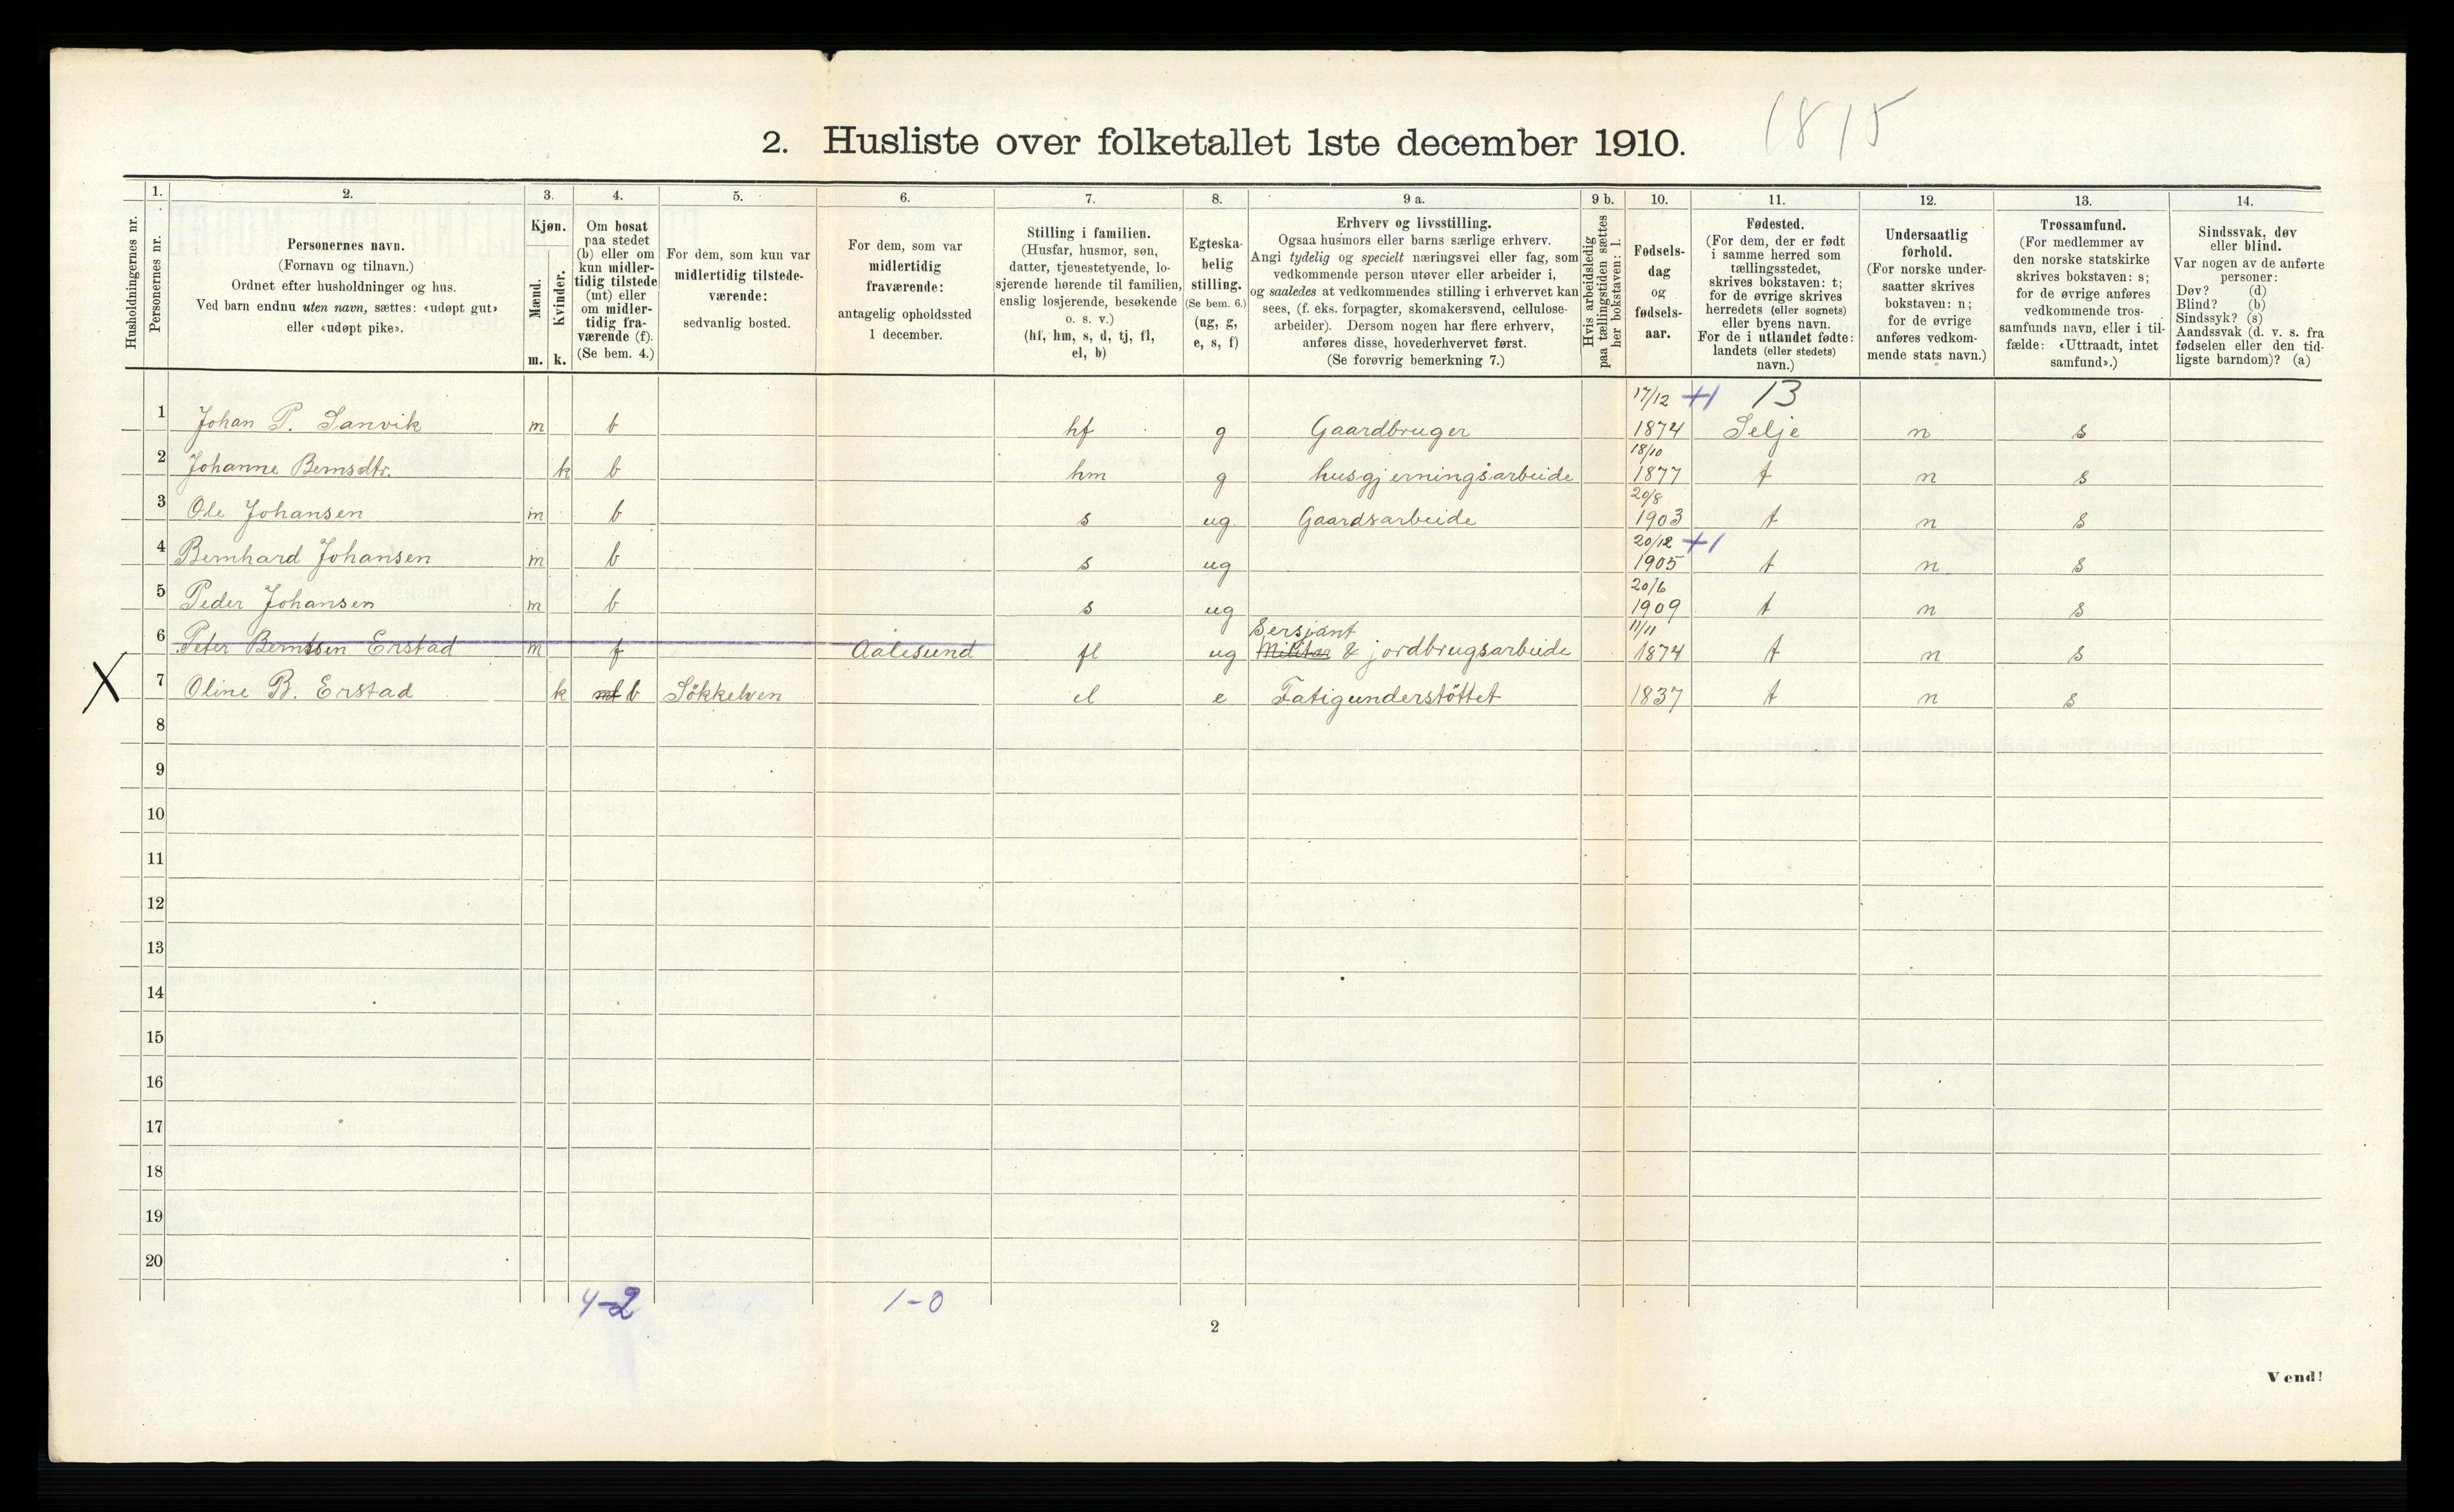 1815
2. Husliste over folketallet 1ste december 1910.
Husholdningernes nr.
1.
Personernes nr.
2.
Personernes navn.
(Fornavn og tilnavn.)
Ordnet efter husholdninger og hus.
Ved barn endnu uten navn, sættes: «udøpt gut»
eller «udøpt pike».
3.
Kjøn.
Mænd.
m.
Kvinder.
k.
4.
Om bosat
paa stedet
(b) eller om
kun midler-
tidig tilstede
(mt) eller
om midler-
tidig fra-
værende (f).
(Se bem. 4.)
5.
For dem, som kun var
midlertidig tilstede-
værende:
sedvanlig bosted.
6.
For dem, som var
midlertidig
fraværende:
antagelig opholdssted
1 december.
7.
Stilling i familien.
(Husfar, husmor, søn,
datter, tjenestetyende, lo-
sjerende hørende til familien,
enslig losjerende, besøkende
o. s. v.)
(hf, hm, s, d, tj, fl,
el, b)
8.
Egteska-
belig
stilling.
(Se bem. 6.)
(ug, g,
e, s, f)
9 a.
Erhverv og livsstilling.
Ogsaa husmors eller barns særlige erhverv.
Angi tydelig og specielt næringsvei eller fag, som
vedkommende person utøver eller arbeider i,
og saaledes at vedkommendes stilling i erhvervet kan
sees, (f. eks. forpagter, skomakersvend, cellulose-
arbeider). Dersom nogen har flere erhverv,
anføres disse, hovederhvervet først.
(Se forøvrig bemerkning 7.)
9 b.
Hvis arbeidsledig
paa tællingstiden sættes
her bokstaven: l.
10.
Fødsels-
dag
og
fødsels-
aar.
11.
Fødested.
(For dem, der er født
i samme herred som
tællingsstedet,
skrives bokstaven: t;
for de øvrige skrives
herredets (eller sognets)
eller byens navn.
For de i utlandet fødte:
landets (eller stedets)
navn.)
12.
Undersaatlig
forhold.
(For norske under-
saatter skrives
bokstaven: n;
for de øvrige
anføres vedkom-
mende stats navn.)
13.
Trossamfund.
(For medlemmer av
den norske statskirke
skrives bokstaven: s;
for de øvrige anføres
vedkommende tros-
samfunds navn, eller i til-
fælde: «Uttraadt, intet
samfund».)
14.
Sindssvak, døv
eller blind.
Var nogen av de anførte
personer:
Døv? (d)
Blind? (b)
Sindssyk? (s)
Aandssvak (d. v. s. fra
fødselen eller den tid-
ligste barndom)? (a)
17/12 +1 13
1 Johan P. Sanvik m b hf g Gaardbruger 1874 Selje n s
18/10
2 Johanne Bernsdtr. k b hm g husgjerningsarbeide 1877 t n s
20/8
3 Ole Johansen m b s ug Gaardsarbeide 1903 t n s
20/12 +1
4 Bernhard Johansen m b s ug 1905 t n s
20/6
5 Peder Johansen m b s ug 1909 t n s
Sersjant 11/11
6 Peter Berntsen Erstad m f Aalesund fl ug Militær & jordbrugsarbeide 1874 t n s
X 7 Oline B. Erstad k mt b Sökkelven el e Fatigunderstöttet 1837 t n s
8
9
10
11
12
13
14
15
16
17
18
19
20
4-2 1-0
2
Vend!